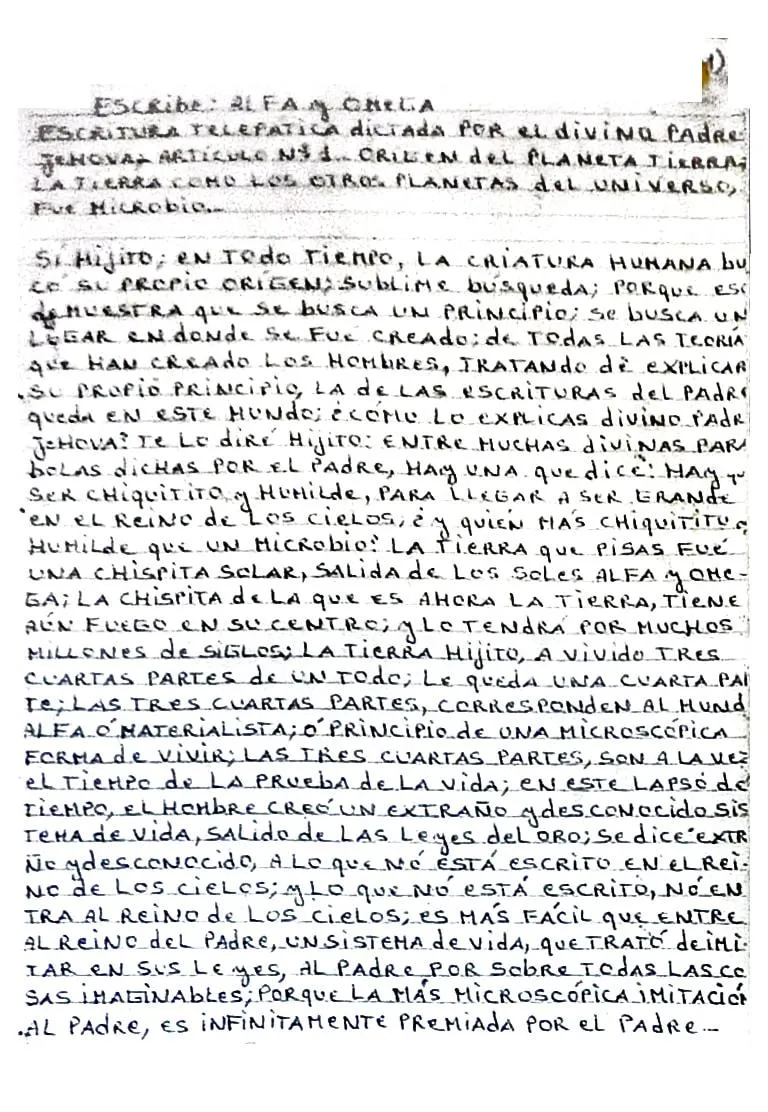 1)
ESCRIBE: ALFA y OMEGA
ESCRITURA TELEPATICA dICTADA POR el divino PADRE
JEHOVA- ARTICULO Nº 1.- ORIGEN del PLANETA TIERRA;
LA TIERRA COMO LOS OTROS PLANETAS del UNIVERSO,
FUE MICROBIO.-
SI Hijito; EN TODO TIEMPO, LA CRIATURA HUMANA bu
CO SU PROPIO ORIGEN; SUBLIME búsqueda; PORQUE ESO
deMUESTRA que SE bUSCA UN PRINCIPIO; SE bUSCA UN
LUGAR EN dONdE SE FUE CREADO; de TODAS LAS TEORIA
que HAN CREADO LOS HOMBRES, TRATANDO dé EXPLICAR
SU PROPIO PRINCIPIO, LA de LAS ESCRITURAS del PADRE
queda EN ESTE MUNDO; ¿CÓMO LO EXPLICAS divino PADR
JEHOVA? TE LO diRÉ Hijito: ENTRE MUCHAS diviNAS PARA
bOLAS dICHAS POR EL PADRE, HAy UNA que dice: HAy qu
SER CHIQUITITO y HUMILDE, PARA LLEGAR A SER GRANDE
EN EL REINO de LOS CIELOS; ¿y quiÉN MÁS CHIQUITITO y
HUMILDE que UN MICROBIO? LA TIERRA que PISAS FUÉ
UNA CHISPITA SOLAR, SALIDA de LOS SOLES ALFA y OME-
GA; LA CHISPITA de LA que ES AHORA LA TIERRA, TIENE
AÚN FUEGO EN SU CENTRO; y LO TENDRÁ POR MUCHOS
MILLONES de SIGLOS; LA TIERRA Hijito, A vivido TRES
CUARTAS PARTES de UN TODO; LE queda UNA CUARTA PAR
TE; LAS TRES CUARTAS PARTES, CORRESPONDEN AL MUND
ALFA Ó MATERIALISTA; Ó PRINCIPIO de UNA MICROSCÓPICA
FORMA de VIVIR; LAS TRES CUARTAS PARTES, SON A LA VEZ
el TIEMPO de LA PRUEBA de LA vida; EN ESTE LAPSO de
TIEMPO, EL HOMBRE CREÓ UN EXTRAÑO y desCONOCIDO SIS
TEMA de VIDA, SALIDO de LAS Leyes del ORO; Se dice EXTR
ÑO y desCONOCIDO, A LO que NO ESTÁ ESCRITO EN el REI-
NO de LOS CIELOS; y LO que NO ESTÁ ESCRITO, NO EN
TRA AL REINO de LOS CIELOS; ES MÁS FÁCIL que ENTRE
AL REINO del PADRE, UN SISTEMA de VIDA, que TRATÓ de iMI-
TAR EN SUS Leyes, AL PADRE POR SOBRE TODAS LAS CO
SAS iMAGINABLES; PORQUE LA MÁS MICROSCÓPICA iMITACIÓN
AL PADRE, ES iNFINITAMENTE PREMIADA POR el PADRE.-